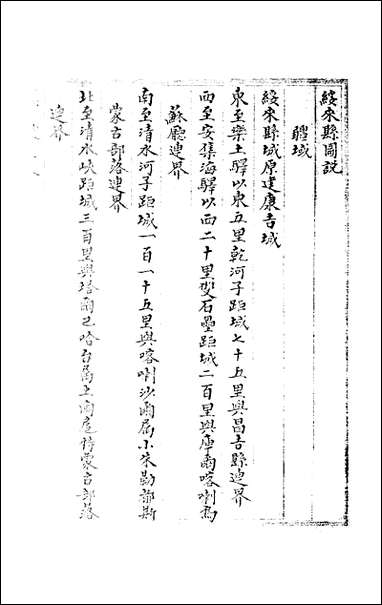 綏來縣圖說
疆域
綏來縣城原建康吉城
東至樂土驛以東五里乾河子距城七十五里與昌吉縣連界
西至安集海驛以西二十里雙石壘距城二百里與庫爾喀喇烏
蘇廳連界
南至清水河子距城一百一十五里與喀喇沙爾屬小朱勒都斯
蒙古部落連界
北至清水峽距城三百里與塔爾巴哈台屬土爾扈特蒙古部落
連界